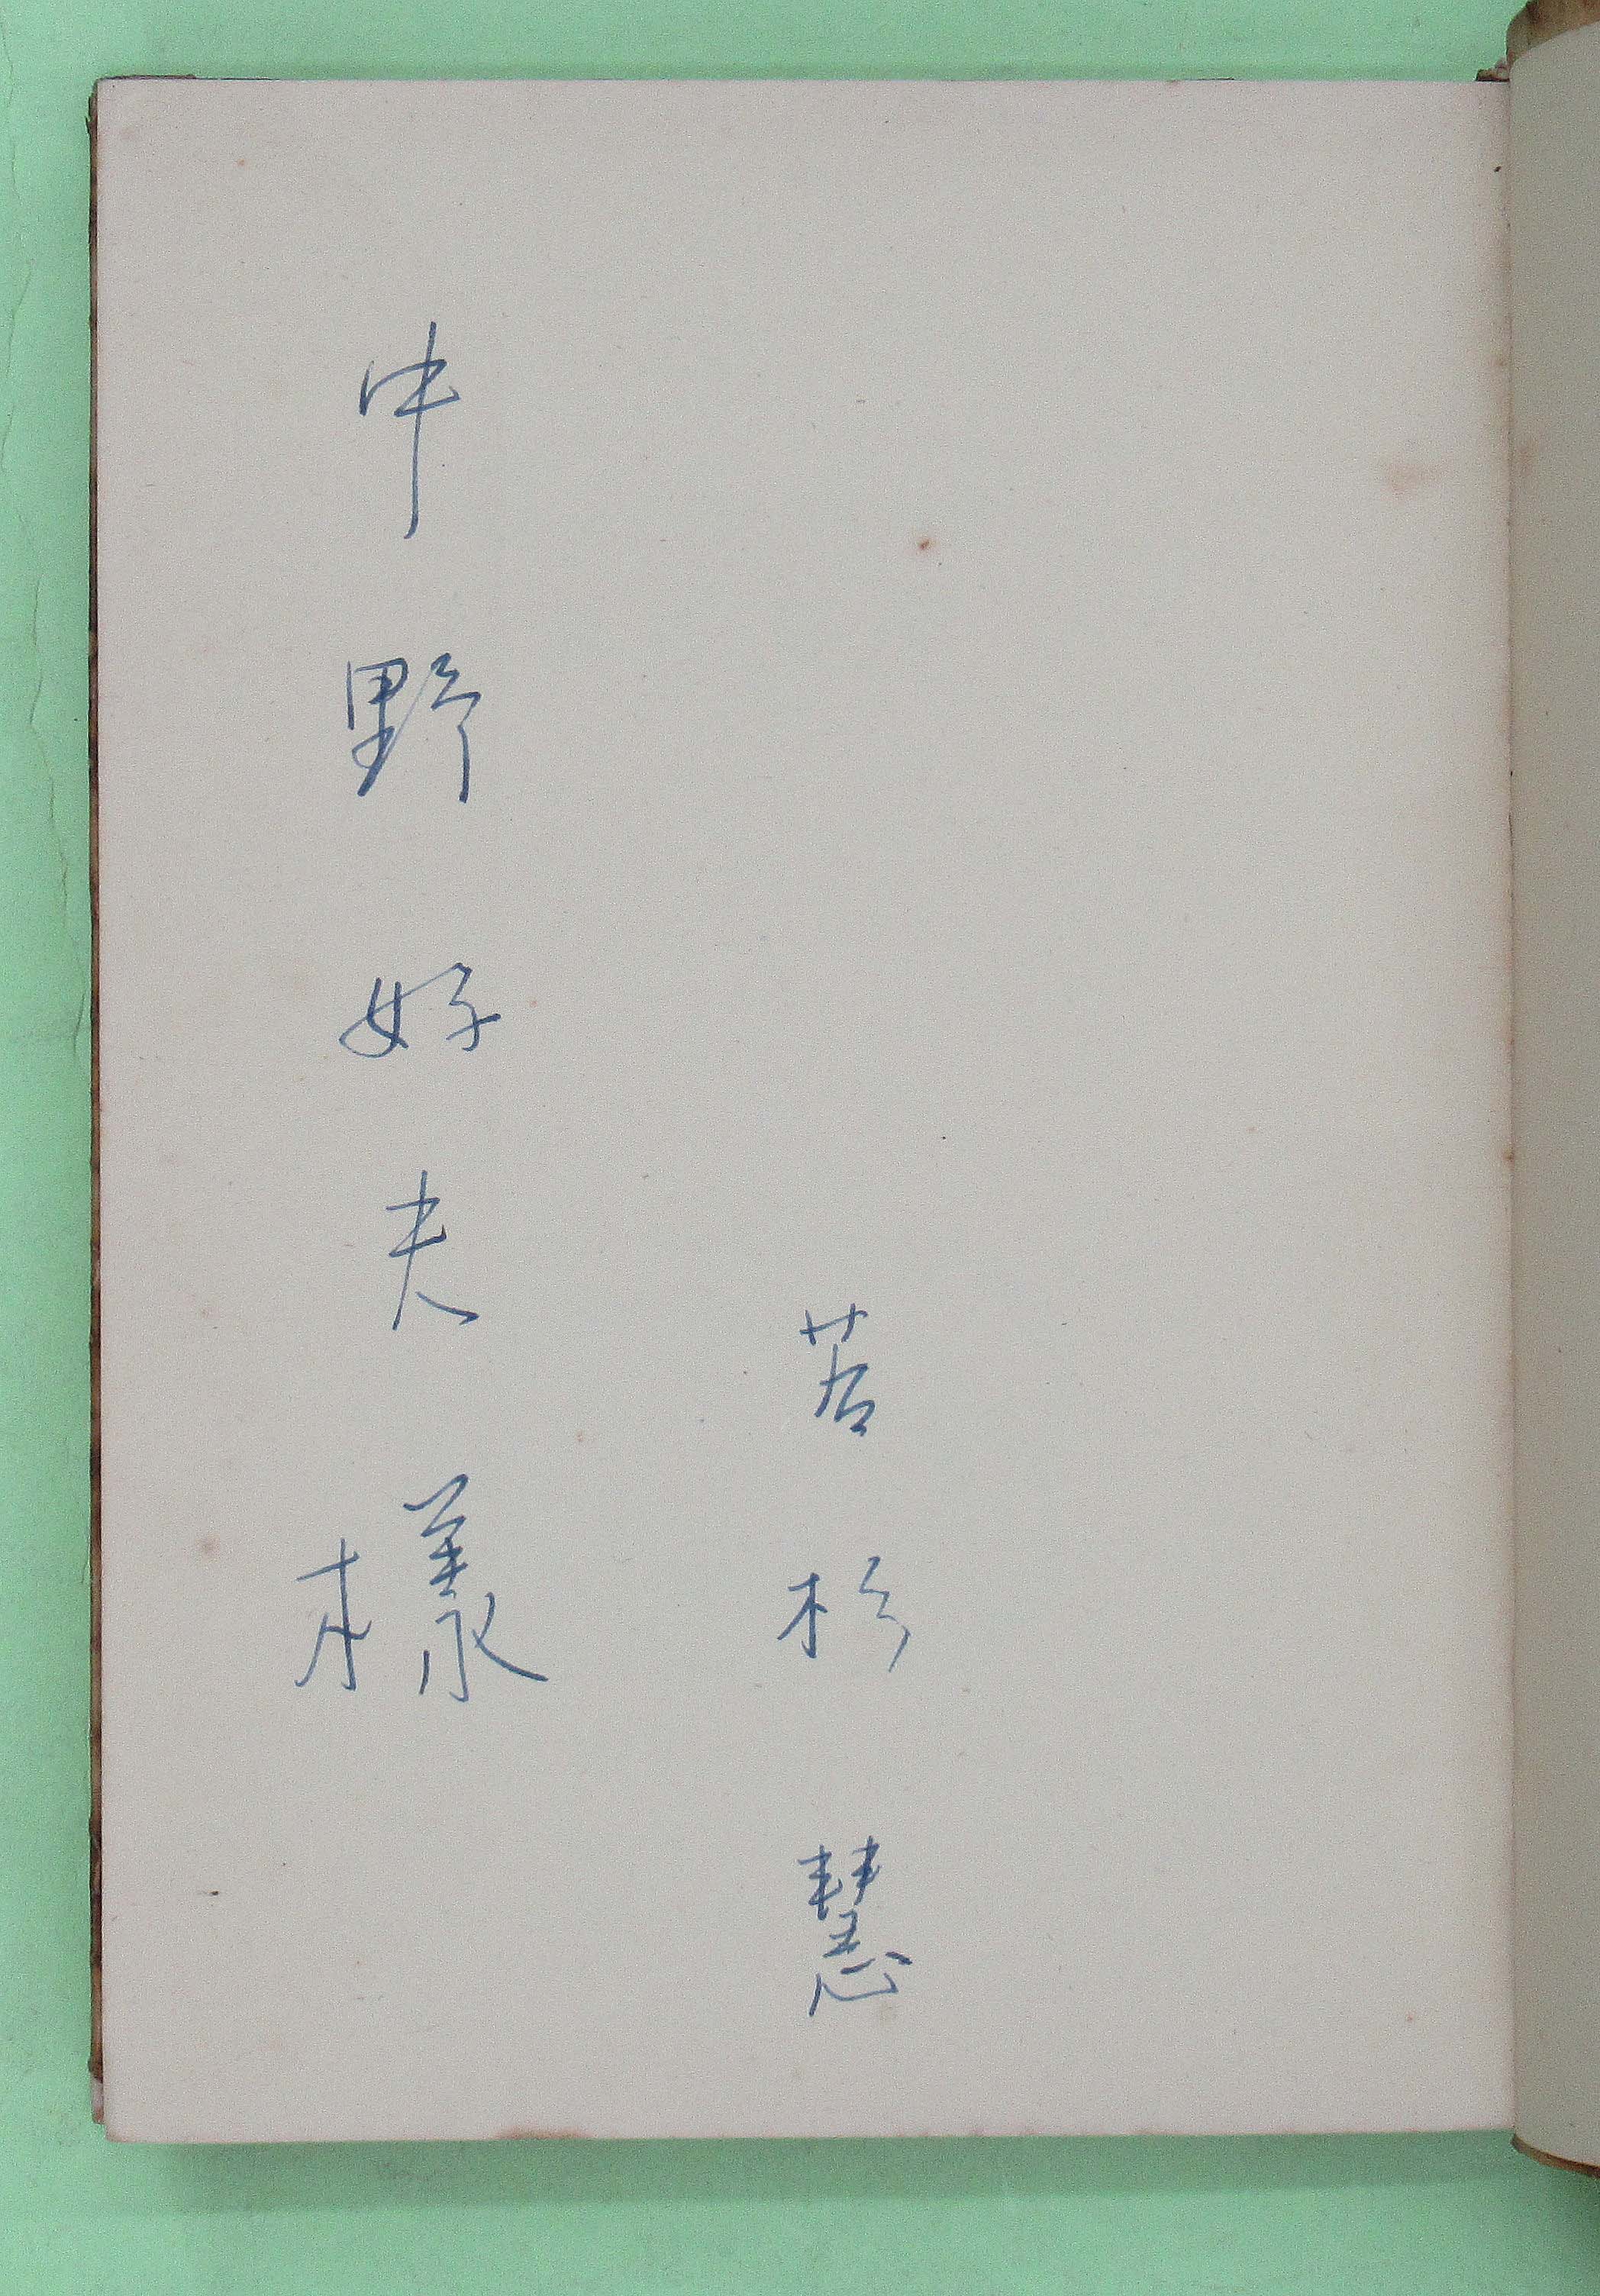 若杉慧
中野好夫様